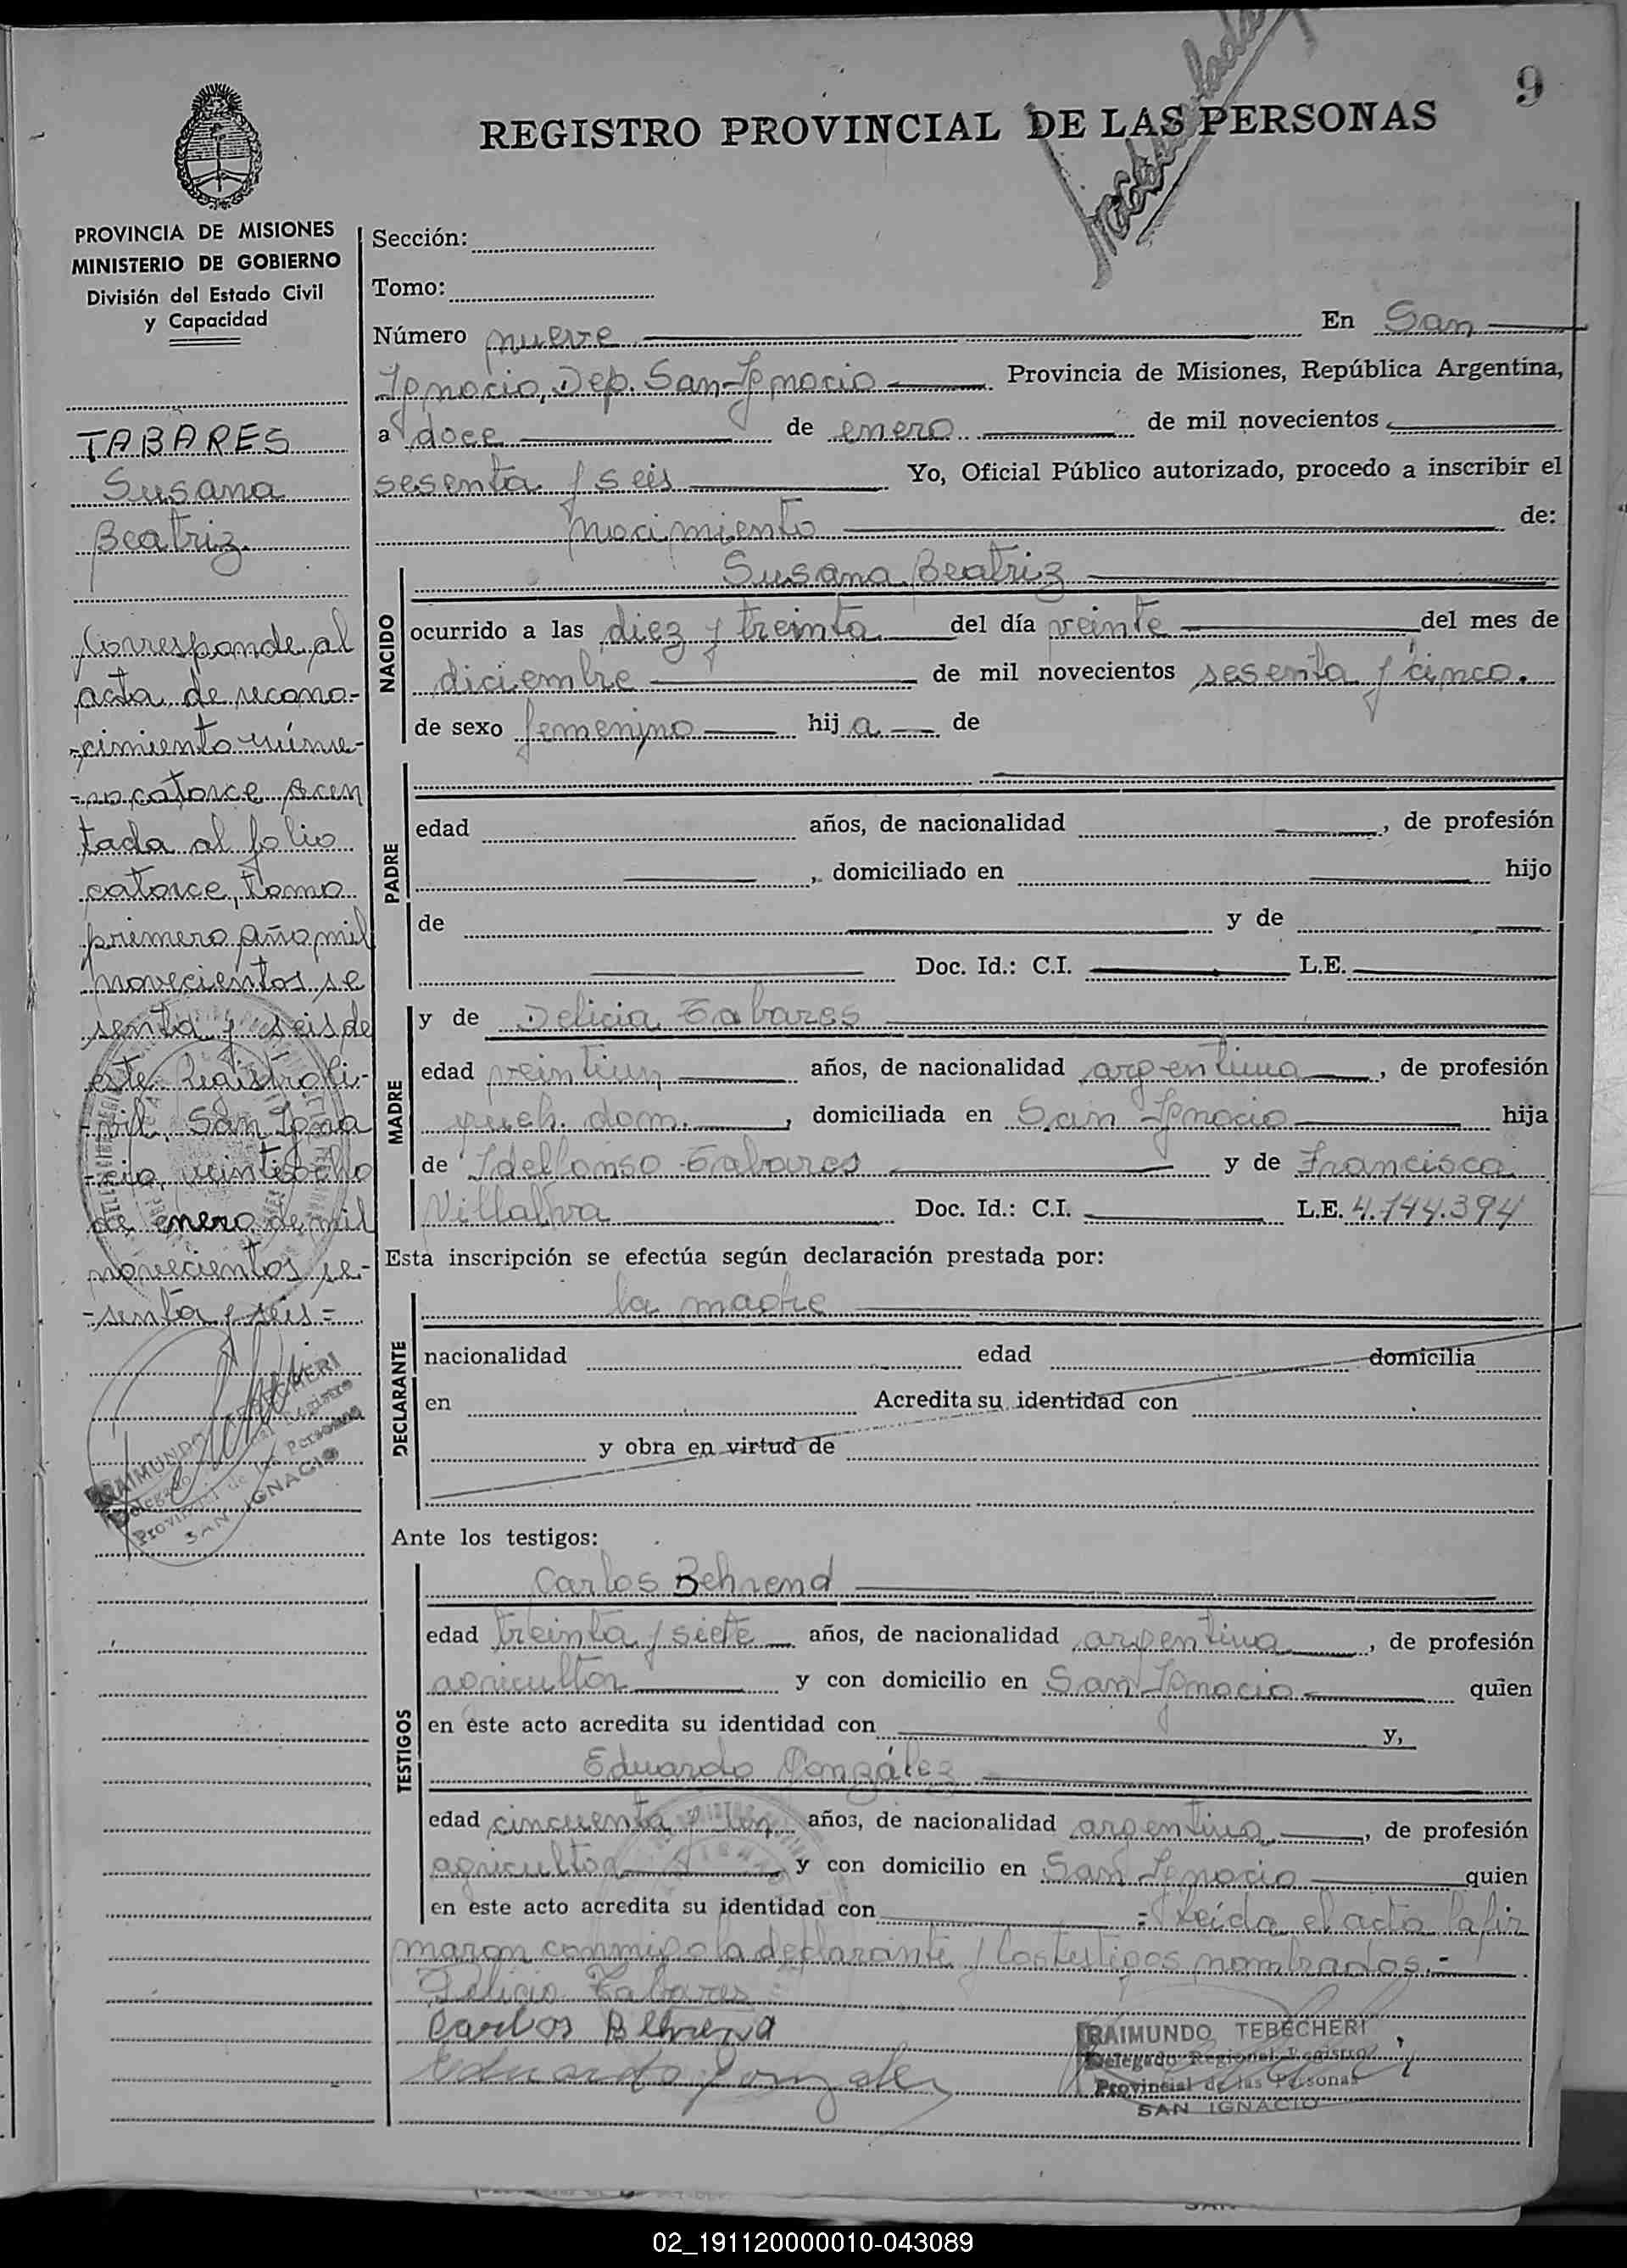 9
REGISTRO PROVINCIAL DE LAS PERSONAS
PROVINCIA DE MISIONES
MINISTERIO DE GOBIERNO
División del Estado Civil
y Capacidad
TABARES
Susana
Beatriz
Corresponde al
acta de recono-
-cimiento núme-
-ro catorce acen
tada al folio
catorce, tomo
primero año mil
novecientos se
senta y seis de
este Registro Ci-
-vil, San Igna
-cio, veintiocho
de enero de mil
novecientos se-
-senta y seis=
RAIMUNDO TEBECHERI
Delegado Regional Registro
Provincial de las Personas
SAN IGNACIO
Sección:
Tomo:
Número nueve En San
Ignacio, Dep. San Ignacio Provincia de Misiones, República Argentina,
a doce de enero de mil novecientos
sesenta y seis Yo, Oficial Público autorizado, procedo a inscribir el
nacimiento de:
NACIDO
Susana Beatriz
ocurrido a las diez y treinta del día veinte del mes de
diciembre de mil novecientos sesenta y cinco.
de sexo femenino hij a de
PADRE
edad años, de nacionalidad , de profesión
, domiciliado en hijo
de y de
Doc. Id.: C.I. L.E.
MADRE
y de Delicia Tabares
edad veintiun años, de nacionalidad argentina, de profesión
queh. dom., domiciliada en San Ignacio hija
de Idelfonso Tabares y de Francisca
Villalva Doc. Id.: C.I. L.E. 4.144.394
Esta inscripción se efectúa según declaración prestada por:
DECLARANTE
la madre
nacionalidad edad domicilia
en Acredita su identidad con
y obra en virtud de
Ante los testigos:
TESTIGOS
Carlos Behrend
edad treinta y siete años, de nacionalidad argentina, de profesión
agricultor y con domicilio en San Ignacio quien
en este acto acredita su identidad con y,
Eduardo González
edad cincuenta y un años, de nacionalidad argentina, de profesión
agricultor y con domicilio en San Ignacio quien
en este acto acredita su identidad con =Leida el acta la fir
maron conmigo la declarante y los testigos nombrados.-
Delicia Tabares
Carlos Behrend
Eduardo Gonzalez
RAIMUNDO TEBECHERI
Delegado Regional Registro
Provincial de las Personas
SAN IGNACIO
02_191120000010-043089